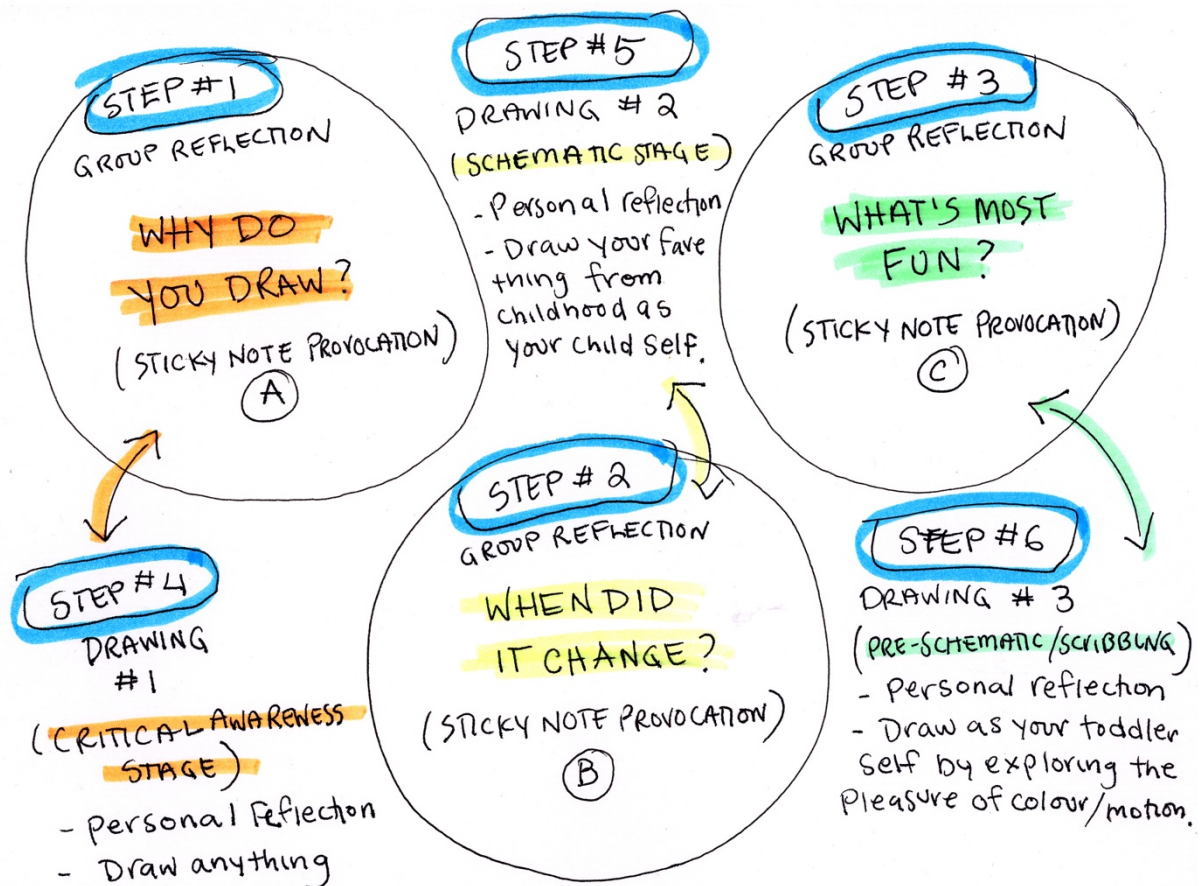 STEP #1
GROUP REFLECTION
WHY DO
YOU DRAW?
(STICKY NOTE PROVOCATION)
A
STEP #5
DRAWING # 2
(SCHEMATIC STAGE)
- Personal reflection
- Draw your fave
thing from
childhood as
your child self.
STEP #3
GROUP REFLECTION
WHAT'S MOST
FUN?
(STICKY NOTE PROVOCATION)
C
STEP #4
DRAWING
#1
(CRITICAL AWARENESS
STAGE)
- personal reflection
- Draw anything
STEP #2
GROUP REFLECTION
WHEN DID
IT CHANGE?
(STICKY NOTE PROVOCATION)
B
STEP #6
DRAWING # 3
(PRE-SCHEMATIC/SCRIBBLING)
- Personal reflection
- Draw as your toddler
self by exploring the
Pleasure of colour/motion.